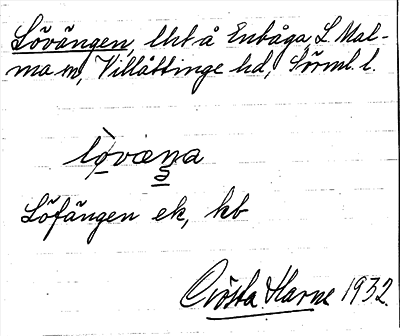 Lövängen, lht å Enbåga, L. Mal-
ma sn, Villåttinge hd, Sörml. l.
Löfängen ek, kb
Gösta Harne 1932.